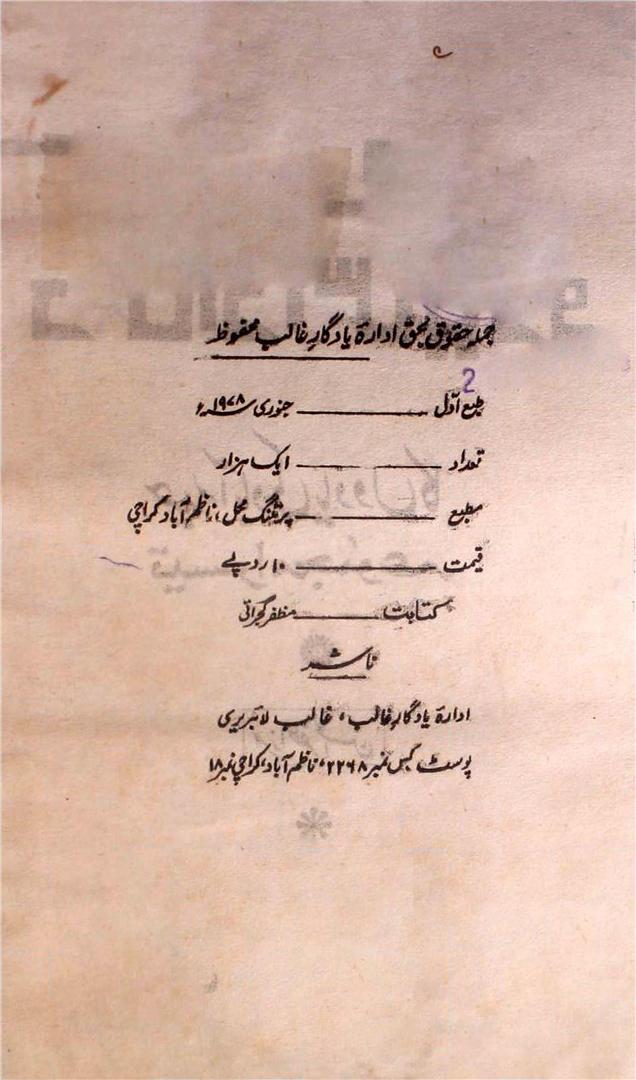 جملہ حقوق بحق ادارۂ یادگارِ غالب محفوظ
2
طبع اوّل ــــــــ جنوری ۱۹۷۸ء
تعداد ــــــــ ایک ہزار
مطبع ــــــــ پرنٹنگ محل، ناظم آباد کراچی
قیمت ــــــــ ۱۰ روپے
کتابت ــــــــ مظفر گجراتی
ناشر
ادارۂ یادگارِ غالب، غالب لائبریری
پوسٹ بکس نمبر ۲۲۶۸، ناظم آباد، کراچی نمبر ۱۸